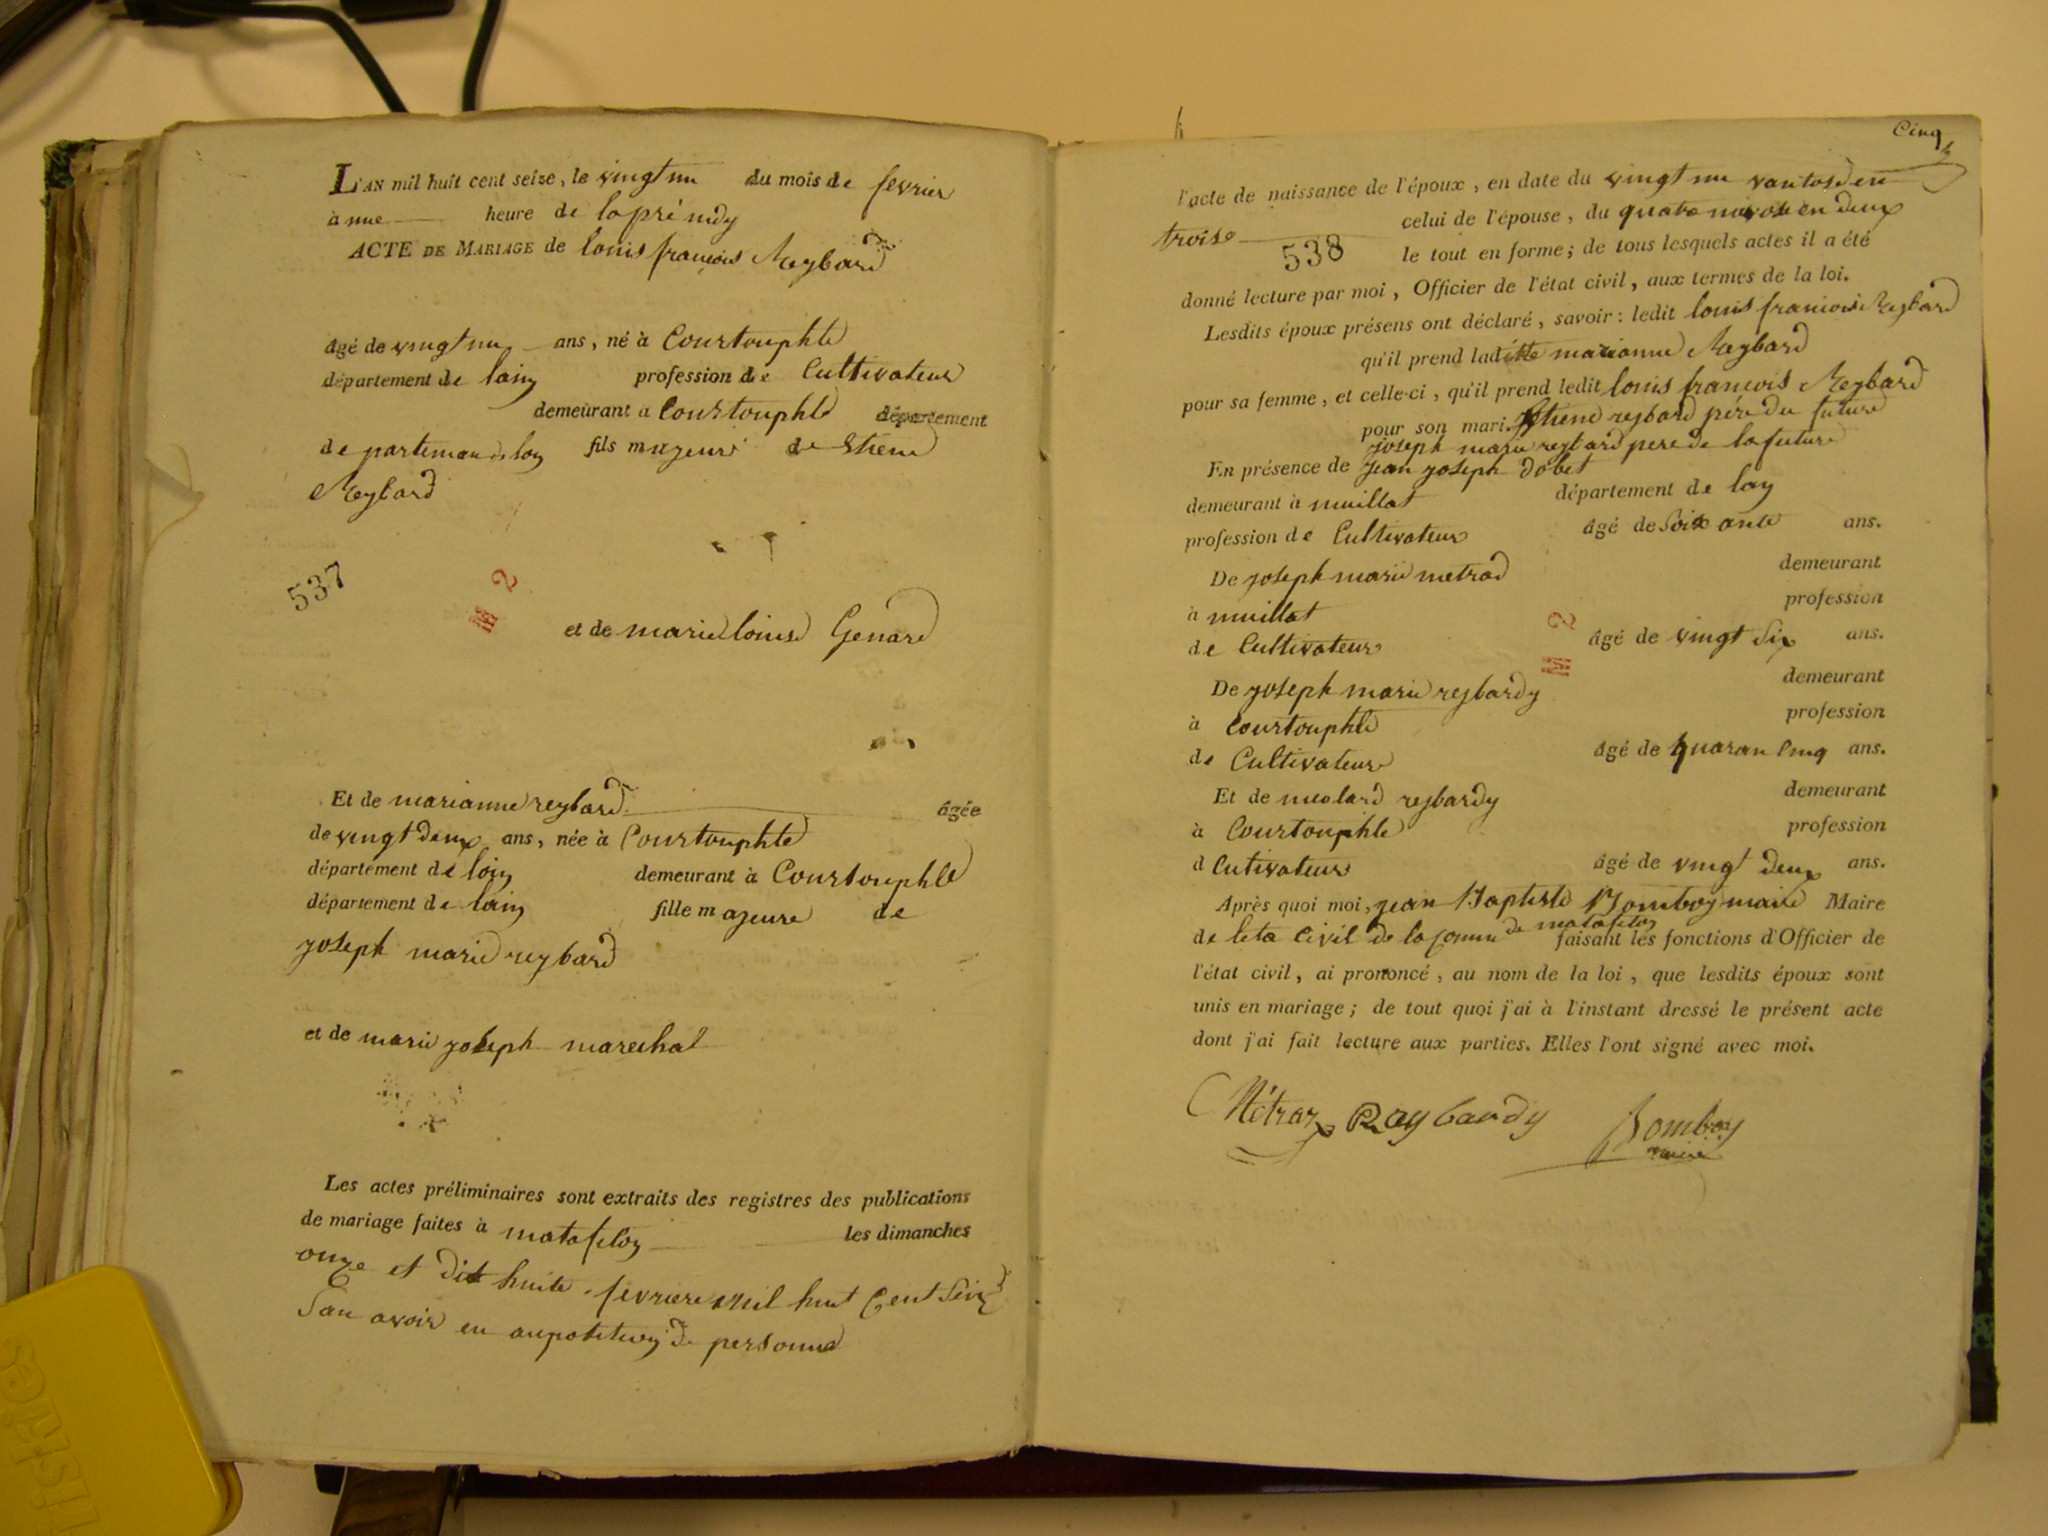 L'AN mil huit cent seize, le vingt un du mois de fevrier
à une heure de laprémidy
ACTE DE MARIAGE de louis françois Reybard
âgé de vingt un ans, né à Courtouphle
département de lain profession de Cultivateur
demeurant à Courtouphle département
de partement de lain fils majeur de Etiene
Reybard
537
M 2
et de marie louise Genard
Et de marianne reybard âgée
de vingt deux ans, née à Courtouphle
département de lain demeurant à Courtouphle
département de lain fille majeure de
joseph marie reybard
et de marie joseph marechal
Les actes préliminaires sont extraits des registres des publications
de mariage faites à matafelon les dimanches
onze et dix huite fevriere mil huit Cent Seize
San avoir eu de personne
Cinq
l'acte de naissance de l'époux, en date du vingt un vantose en
troise celui de l'épouse, du quatre nivose en deux
538 le tout en forme; de tous lesquels actes il a été
donné lecture par moi, Officier de l'état civil, aux termes de la loi.
Lesdits époux présens ont déclaré, savoir: ledit louis francois Reybard
qu'il prend ladite marianne Reybard
pour sa femme, et celle-ci, qu'il prend ledit louis francois Reybard
pour son mari. Etiene reybard pére du future
joseph marie reybard pere de la future
En présence de jean joseph dobet
demeurant à muillat département de lay
profession de Cultivateur âgé de Soix ante ans.
De joseph marie metrad demeurant
à muillat profession
de Cultivateur âgé de vingt Six ans.
M 2
De joseph marie reybardy demeurant
à Courtouphle profession
de Cultivateur âgé de quaran Cinq ans.
Et de nicolard reybardy demeurant
à Courtouphle profession
d Cutivateur âgé de vingt deux ans.
Après quoi moi, jean Baptiste Bomboy maire Maire
de leta Civil de la comune de matafelon faisant les fonctions d'Officier de
l'état civil, ai prononcé, au nom de la loi, que lesdits époux sont
unis en mariage; de tout quoi j'ai à l'instant dressé le présent acte
dont j'ai fait lecture aux parties. Elles l'ont signé avec moi.
Métras Reybardy Bomboy
maire